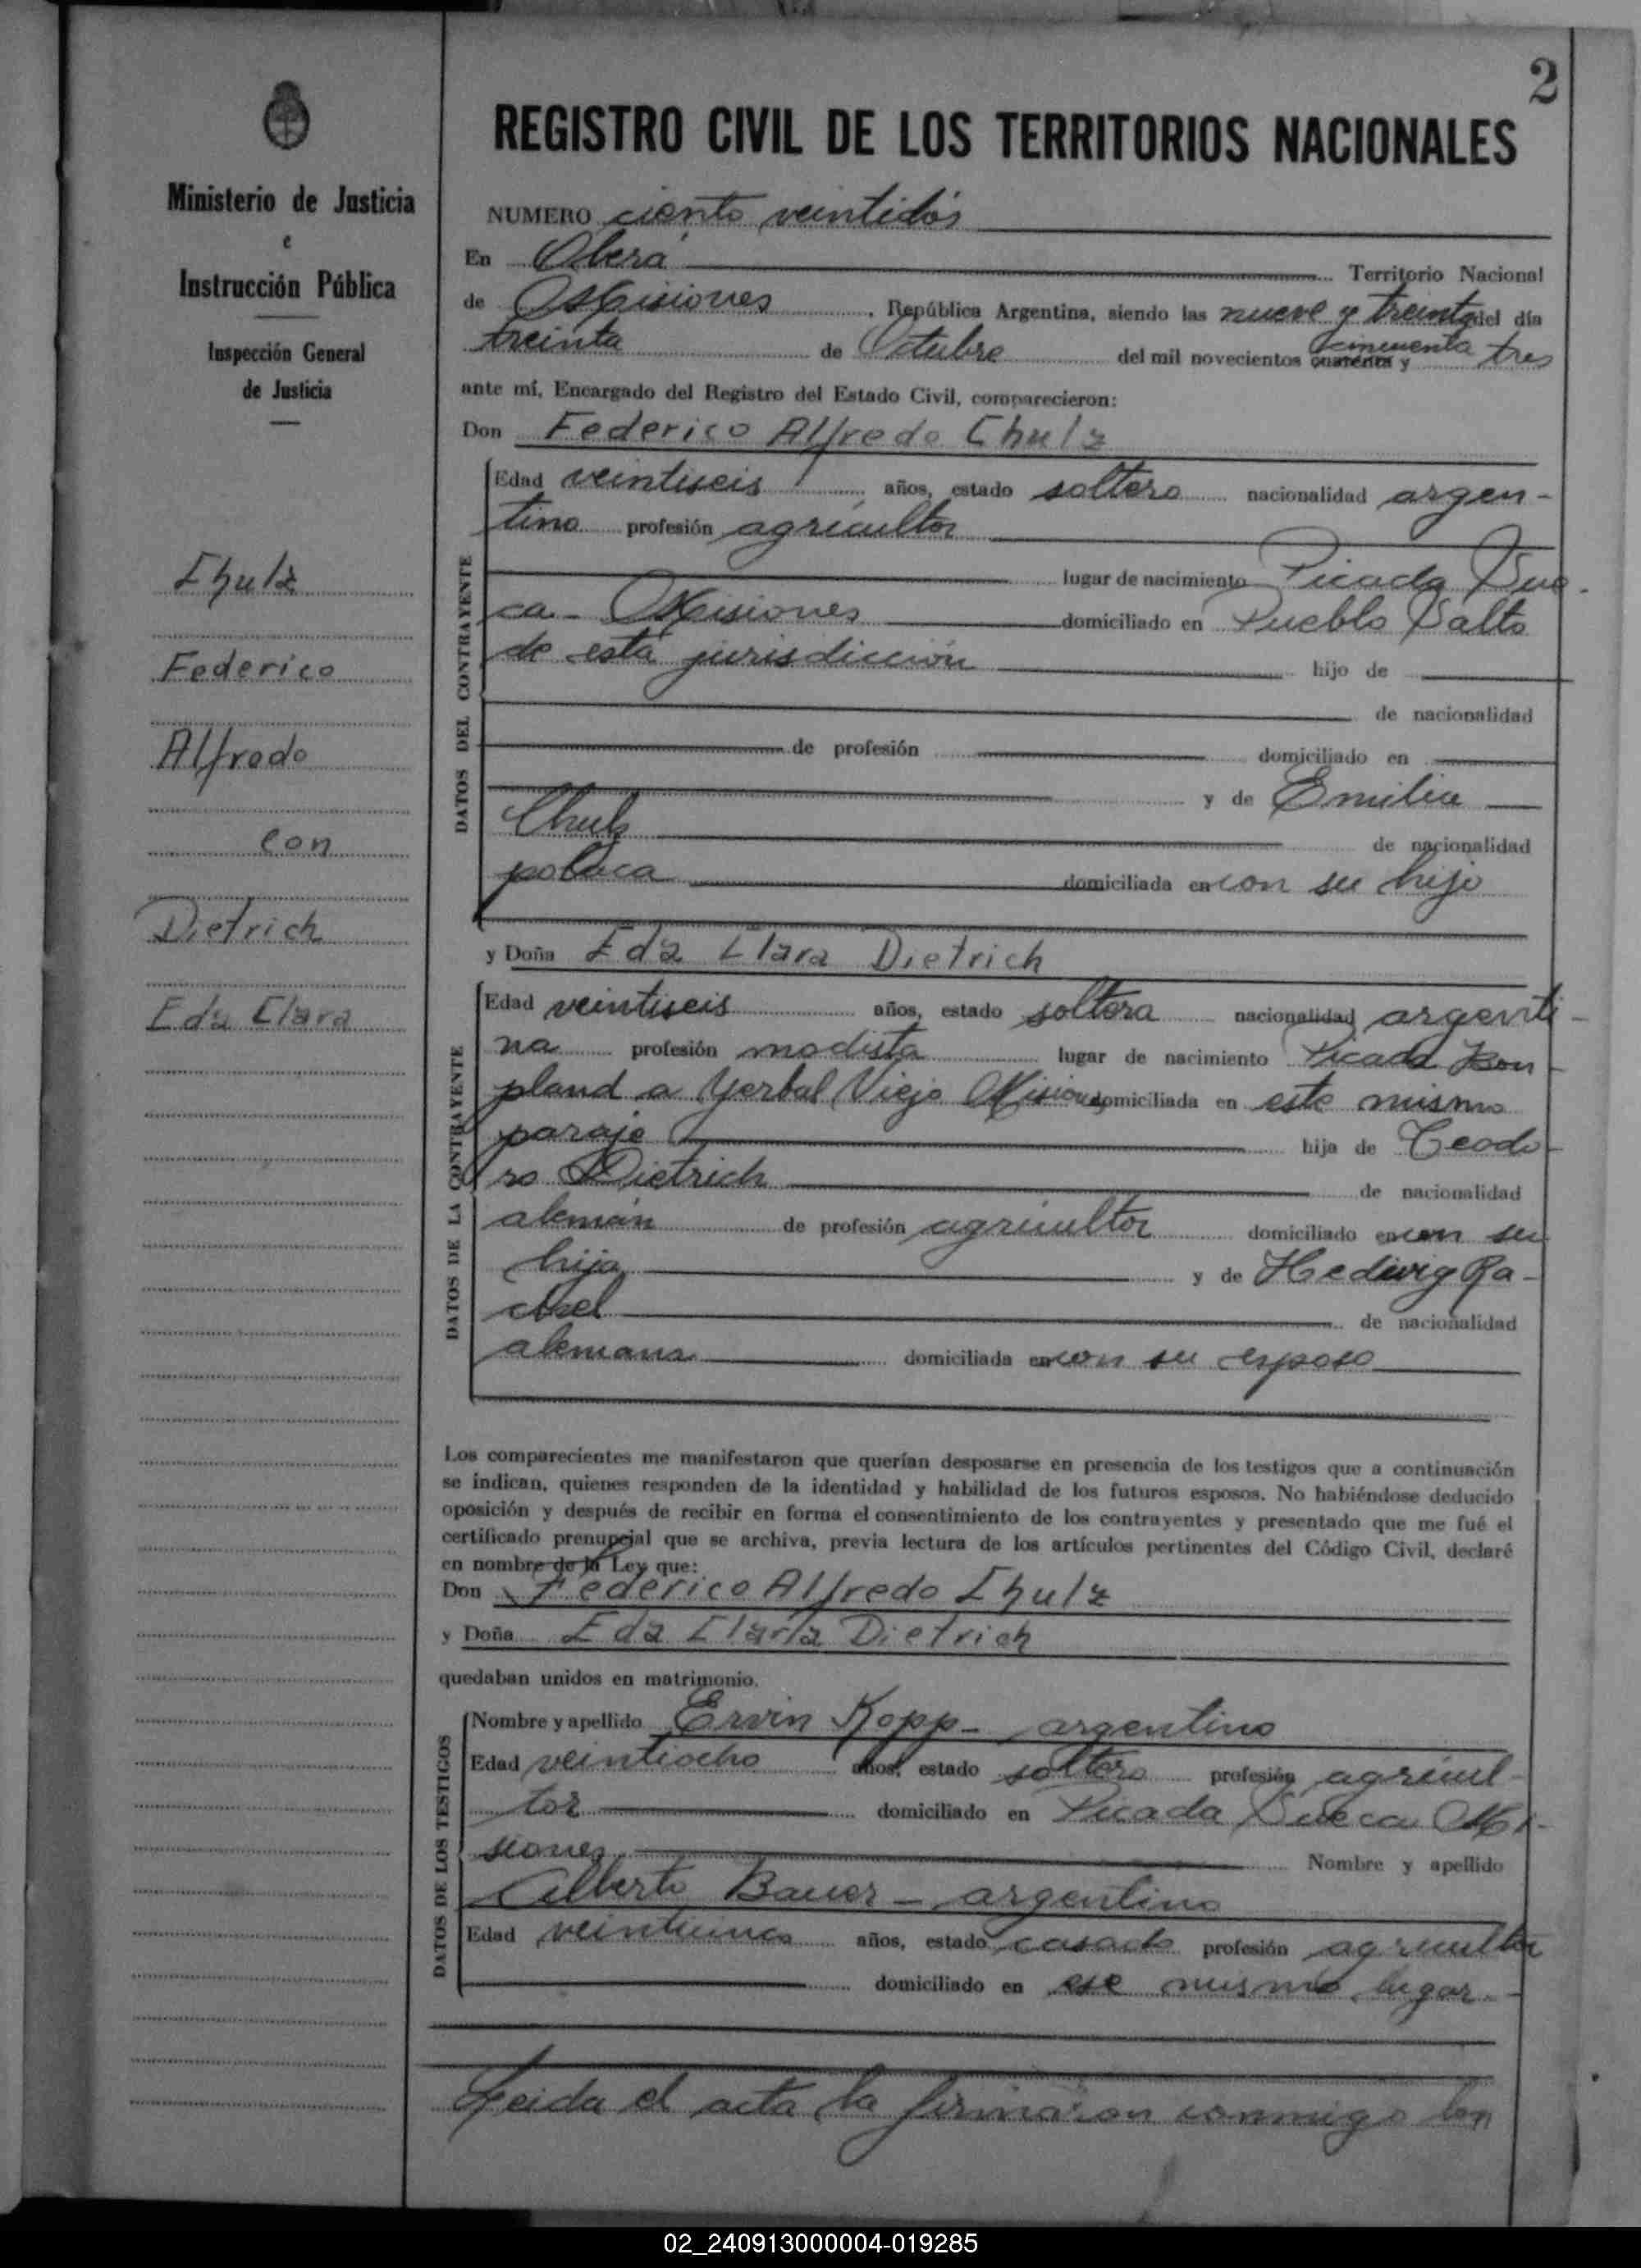 2
REGISTRO CIVIL DE LOS TERRITORIOS NACIONALES
Ministerio de Justicia
e
Instrucción Pública
Inspección General
de Justicia
Chulz
Federico
Alfredo
con
Dietrich
Eda Clara
NUMERO ciento veintidós
En Oberá Territorio Nacional
de Misiones, República Argentina, siendo las nueve y treinta del día
treinta de Octubre del mil novecientos cuarenta y cincuenta tres
ante mí, Encargado del Registro del Estado Civil, comparecieron:
Don Federico Alfredo Chulz
DATOS DEL CONTRAYENTE
Edad veintiseis años, estado soltero nacionalidad argen-
tino profesión agricultor
lugar de nacimiento Picada Sue-
ca - Misiones domiciliado en Pueblo Salto
de esta jurisdicción hijo de
de nacionalidad
de profesión domiciliado en
y de Emilia
Chulz de nacionalidad
polaca domiciliada en con su hijo
y Doña Eda Clara Dietrich
DATOS DE LA CONTRAYENTE
Edad veintiseis años, estado soltera nacionalidad argenti-
na profesión modista lugar de nacimiento Picada Bon-
pland a Yerbal Viejo Misiones domiciliada en este mismo
paraje hija de Teodo-
ro Dietrich de nacionalidad
alemán de profesión agricultor domiciliado en con su
hija y de Hedwig Ra-
chel de nacionalidad
alemana domiciliada en con su esposo
Los comparecientes me manifestaron que querían desposarse en presencia de los testigos que a continuación
se indican, quienes responden de la identidad y habilidad de los futuros esposos. No habiéndose deducido
oposición y después de recibir en forma el consentimiento de los contrayentes y presentado que me fué el
certificado prenupcial que se archiva, previa lectura de los artículos pertinentes del Código Civil, declaré
en nombre de la Ley que:
Don Federico Alfredo Chulz
y Doña Eda Clara Dietrich
quedaban unidos en matrimonio.
DATOS DE LOS TESTIGOS
Nombre y apellido Ervin Kopp - argentino
Edad veintiocho años, estado soltero profesión agricul-
tor domiciliado en Picada Sueca Mi-
siones Nombre y apellido
Alberto Bauer - argentino
Edad veinticinco años, estado casado profesión agricultor
domiciliado en ese mismo lugar.-
Leida el acta la firmaron conmigo los
02_240913000004-019285